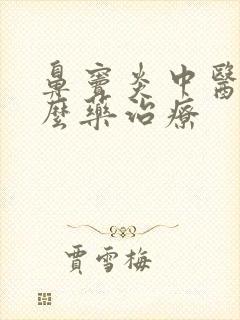 鼻竇炎中醫
麼藥治療
賈雪梅